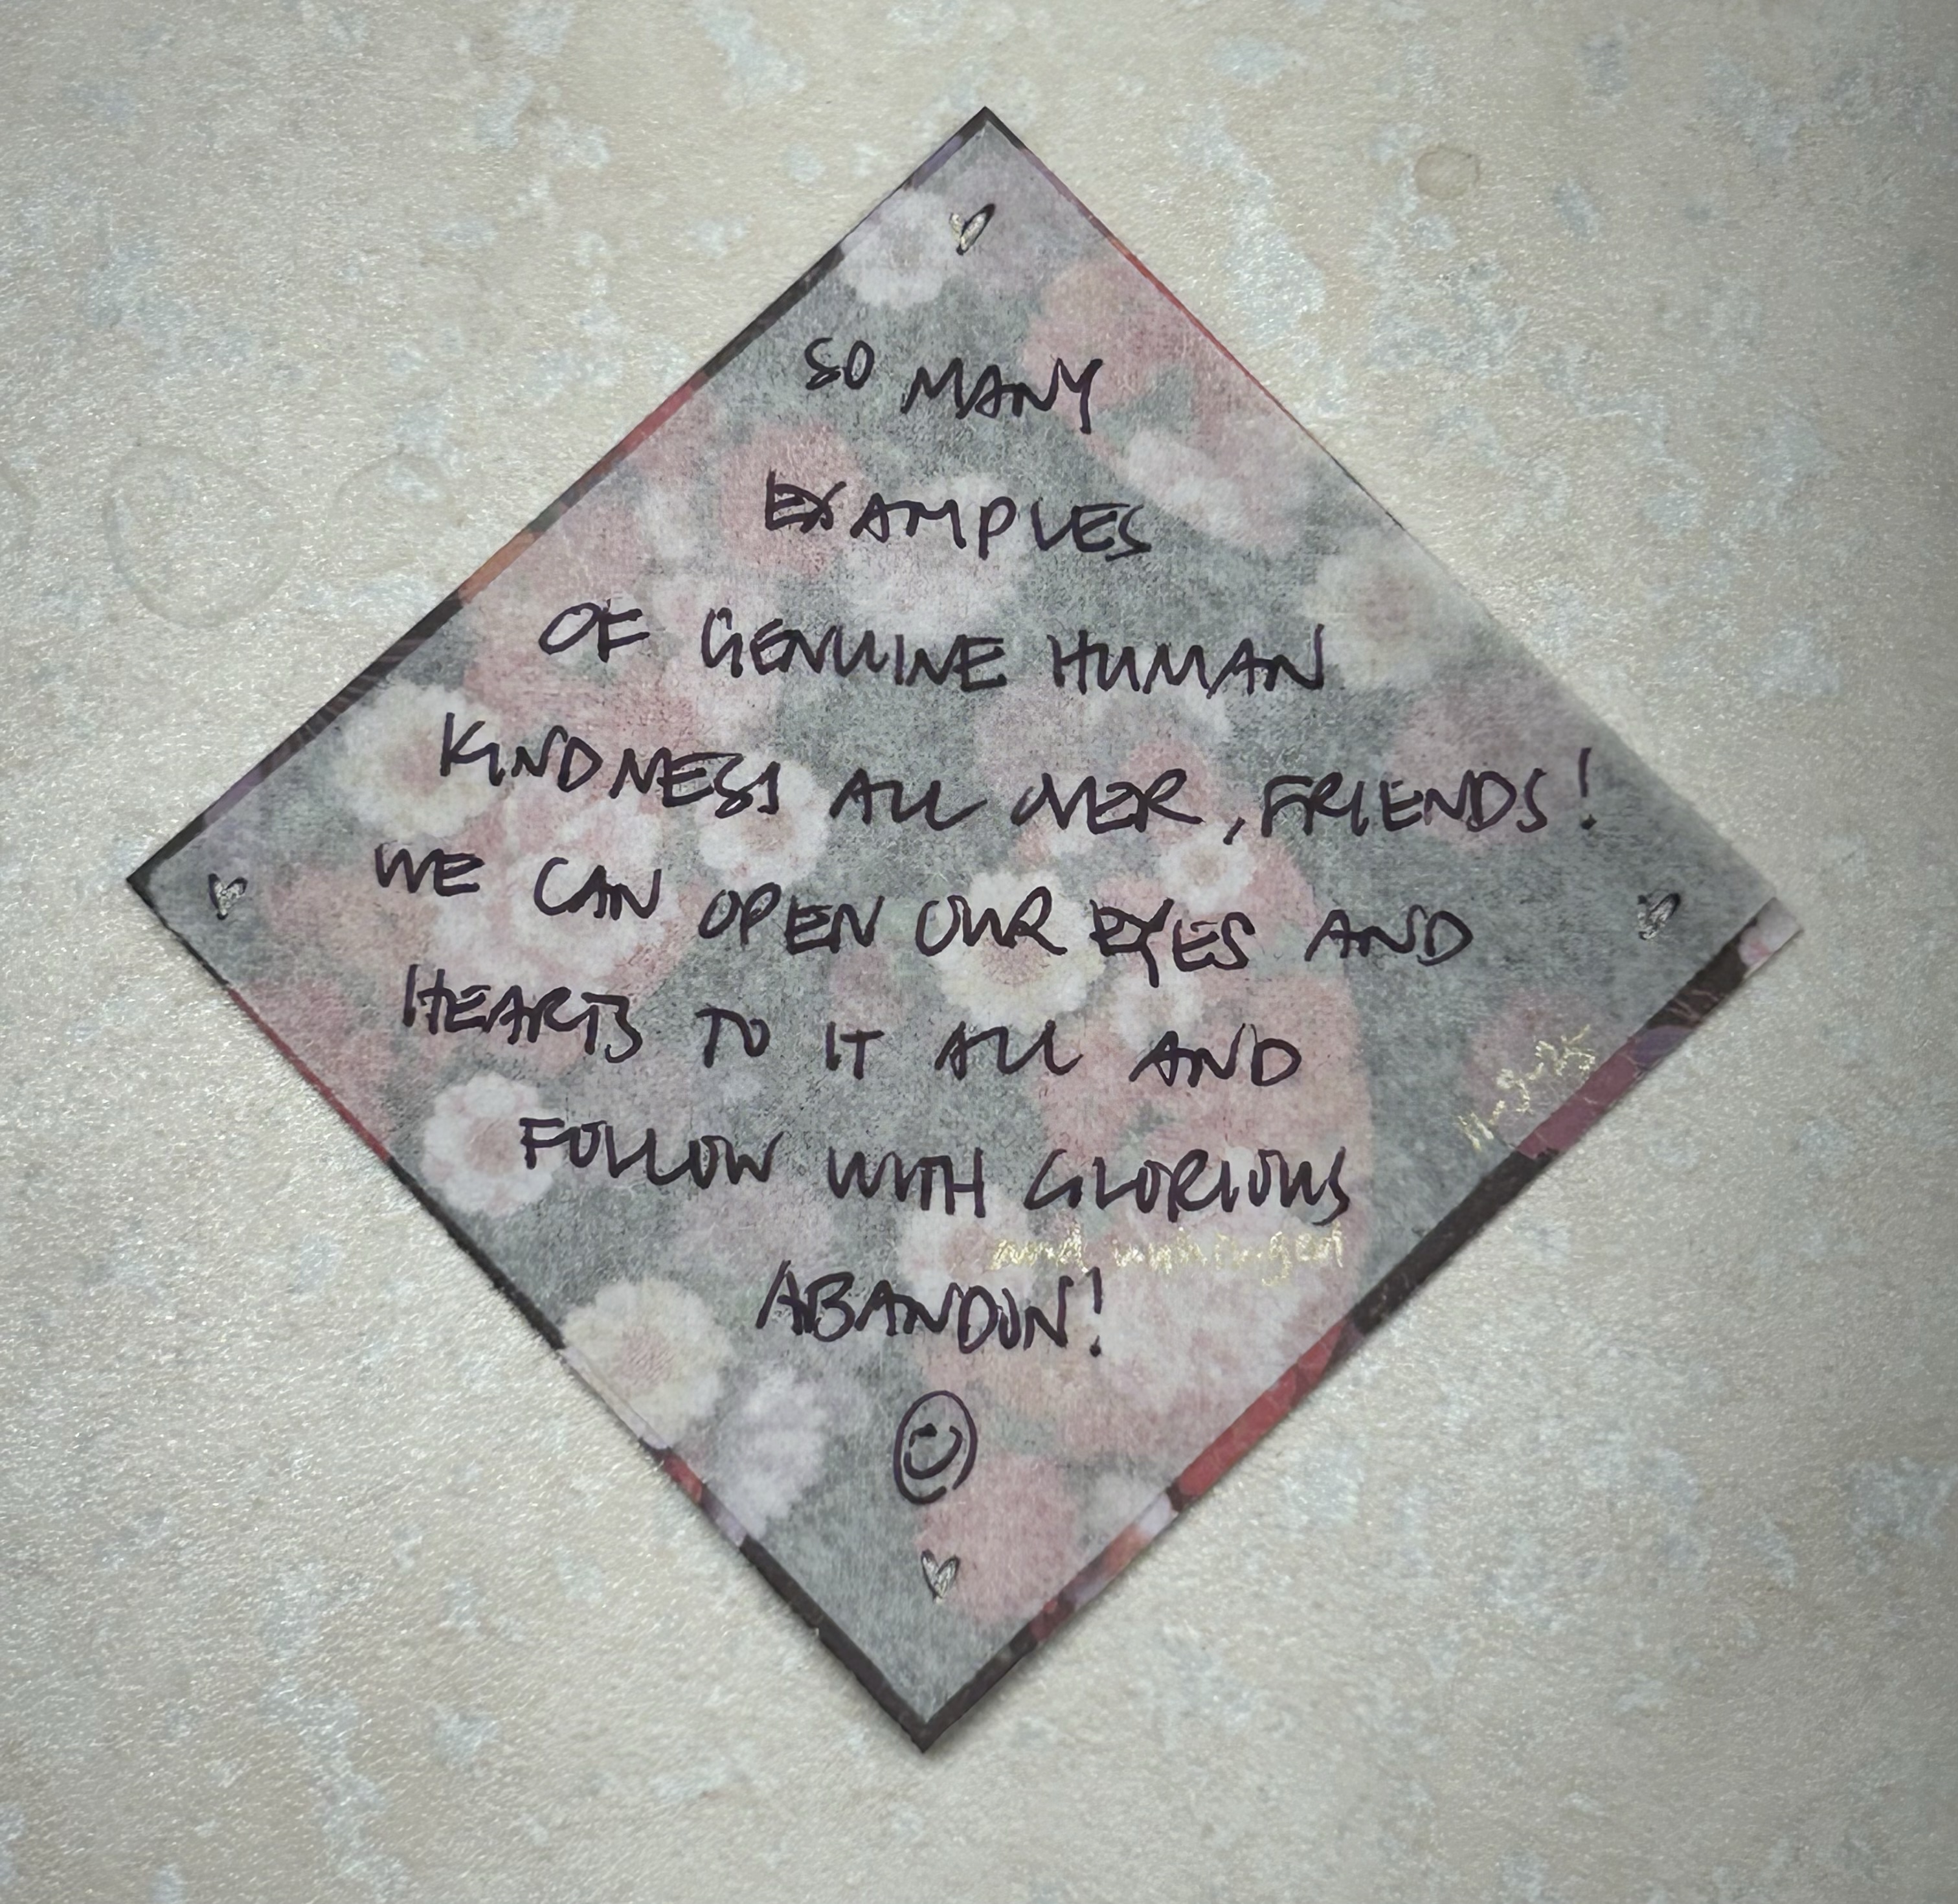 SO MANY
EXAMPLES
OF GENUINE HUMAN
KINDNESS ALL OVER, FRIENDS!
WE CAN OPEN OUR EYES AND
HEARTS TO IT ALL AND
FOLLOW WITH GLORIOUS
and
ABANDON!
11-9-25